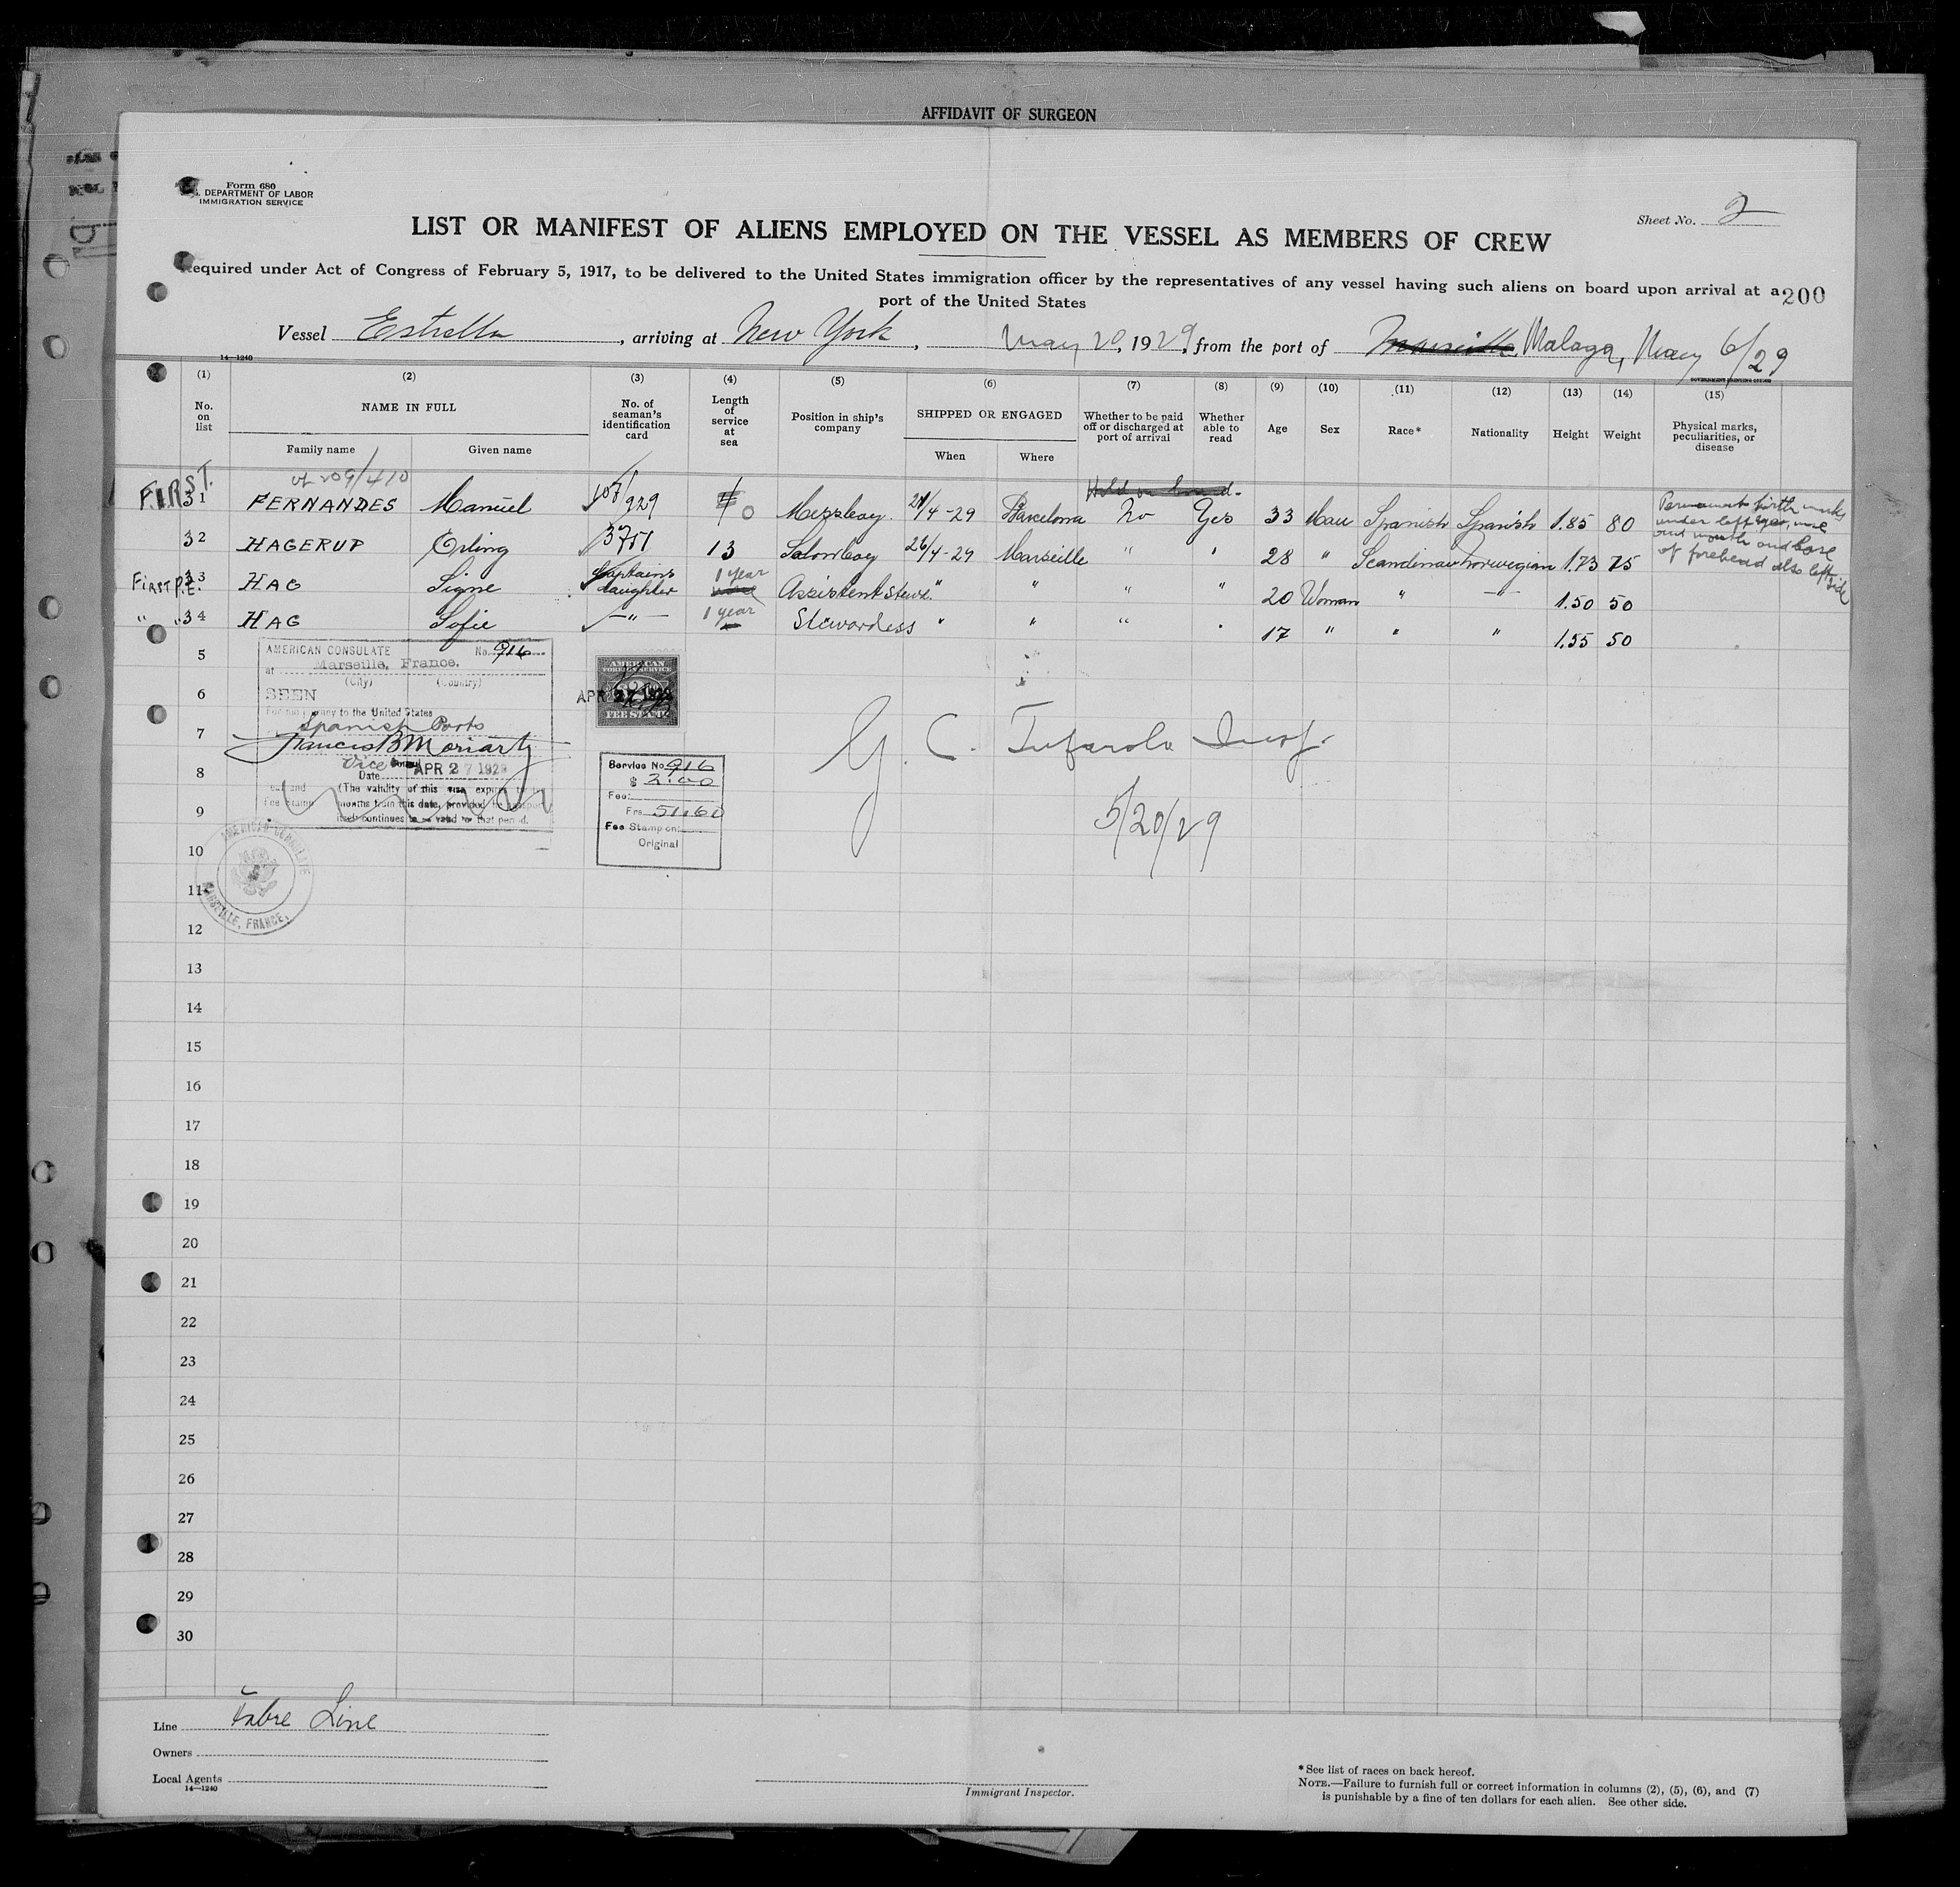 AFFIDAVIT OF SURGEON
Form 680
DEPARTMENT OF LABOR
IMMIGRATION SERVICE
Sheet No. 2
LIST OR MANIFEST OF ALIENS EMPLOYED ON THE VESSEL AS MEMBERS OF CREW
Required under Act of Congress of February 5, 1917, to be delivered to the United States immigration officer by the representatives of any vessel having such aliens on board upon arrival at a
port of the United States
200
Vessel Estrella, arriving at New York, May 20, 1929, from the port of Marseille Malaga, May 6/29
14—1240
(1) (2) (3) (4) (5) (6) (7) (8) (9) (10) (11) (12) (13) (14) (15)
No. on list
NAME IN FULL
Family name Given name
No. of seaman's identification card
Length of service at sea
Position in ship's company
SHIPPED OR ENGAGED
When Where
Whether to be paid off or discharged at port of arrival
Whether able to read
Age
Sex
Race*
Nationality
Height
Weight
Physical marks, peculiarities, or disease
209/410
Hold on board.
FIRST. 31 FERNANDES Manuel 929 0 Messboy. 4-29 Barcelona No Yes 33 Man Spanish Spanish 1.85 80 Permanent birth marks
under left eye, nose
and mouth and base
of forehead also left
side
32 HAGERUP Erling 13 Salonboy 26/4-29 Marseille " " 28 " Scandinav Norwegian 1.73 75
First P.E. 33 HAG Signe Captains daughter 1 year Assistent Stewd. " " " " 20 Woman " —"— 1.50 50
" " 34 HAG Sofie —"— 1 year Stewardess " " " " 17 " " " 1.55 50
5
6
7
8
9
10
11
12
13
14
15
16
17
18
19
20
21
22
23
24
25
26
27
28
29
30
AMERICAN CONSULATE No. 916
at Marseille, France.
(City) (Country)
SEEN
For journey to the United States
Spanish Ports
Francis B Moriarty
Vice Consul
Date APR 27 1929
(The validity of this visa expires
months from this date, provided the passport
itself continues to be valid for that period.
Fee stamp
AMERICAN CONSULATE
MARSEILLE, FRANCE.
AMERICAN
FOREIGN SERVICE
FEE STAMP
APR 27 1929
Service No. 916
$ 2.00
Fee:
Frs 51.60
Fee Stamp on:
Original
G. C. Tufarolo Insp.
5/20/29
Line Fabre Line
Owners
Local Agents
14—1240
Immigrant Inspector.
*See list of races on back hereof.
NOTE.—Failure to furnish full or correct information in columns (2), (5), (6), and (7)
is punishable by a fine of ten dollars for each alien. See other side.